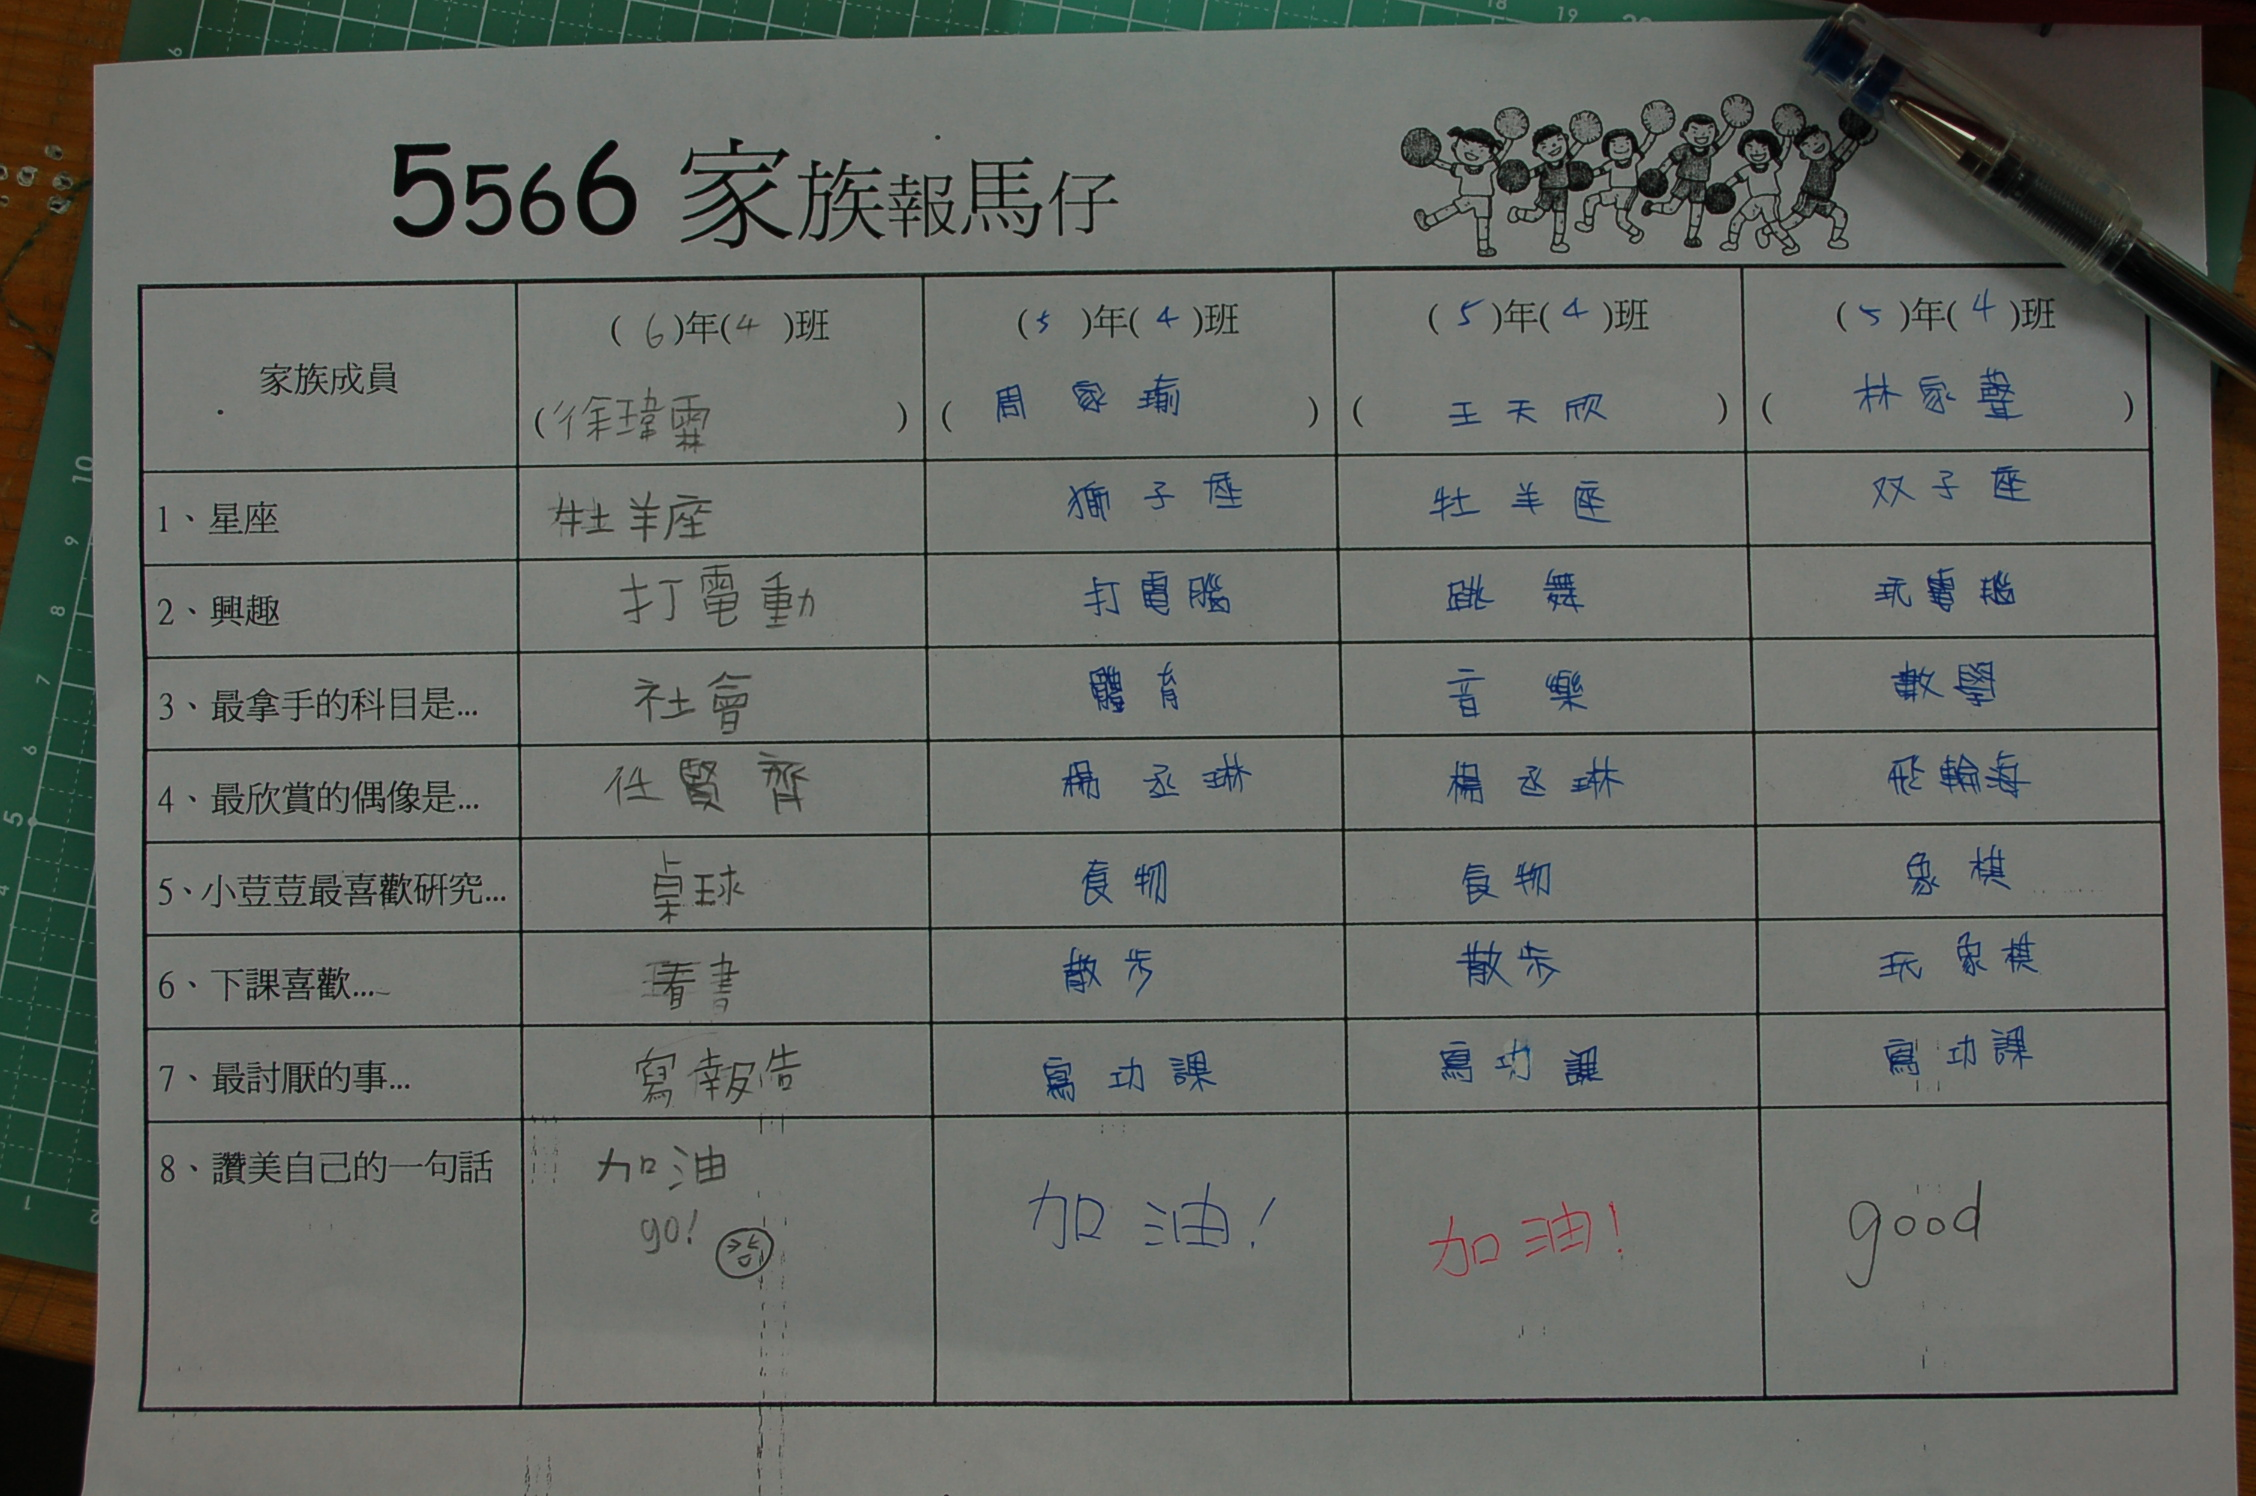 5566 家族報馬仔
家族成員
( 6 )年( 4 )班
(徐瑋霖)
( 5 )年( 4 )班
(周家瑜)
( 5 )年( 4 )班
(王天欣)
( 5 )年( 4 )班
(林家聲)
1、星座
牡羊座
獅子座
牡羊座
双子座
2、興趣
打電動
打電腦
跳舞
玩電腦
3、最拿手的科目是...
社會
體育
音樂
數學
4、最欣賞的偶像是...
任賢齊
楊丞琳
楊丞琳
飛輪海
5、小荳荳最喜歡研究...
桌球
食物
食物
象棋
6、下課喜歡...
看書
散步
散步
玩象棋
7、最討厭的事...
寫報告
寫功課
寫功課
寫功課
8、讚美自己的一句話
加油
go!
加油!
加油!
good
10
9
8
7
6
5
4
1
2
6
18
19
20